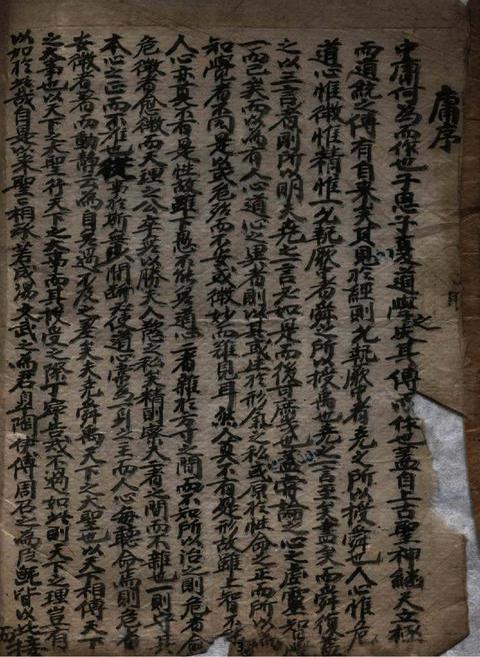 庸序
中庸何為而作也子思子憂道學之失其傳而作也蓋自上古聖神繼天立極
而道統之傳有自來矣其見於經則允執厥中者堯之所以授舜也人心惟危
道心惟微惟精惟一允執厥中者舜之所以授禹也堯之一言至矣盡矣而舜復益
之以三言者則所以明夫堯之一言必如是而後可庶幾也蓋嘗論之心之虛靈知覺
一而已矣而以為有人心道心之異者則以其或生於形氣之私或原於性命之正而所以為
知覺者不同是以或危殆而不安或微妙而難見耳然人莫不有是形故雖上智不
人心亦莫不有是性故雖下愚不能無道心二者雜於方寸之間而不知所以治之則危者愈
危微者愈微而天理之公卒無以勝夫人慾之私矣精則察夫二者之間而不雜也一則守其
本心之正而不離也從事於斯無少間斷必使道心常為一身之主而人心每聽命焉則危者
安微者著而動靜云為自無過不及之差矣夫堯舜禹天下之大聖也以天下相傳天下
之大事也以天下之大聖行天下之大事而其授受之際丁寧告戒不過如此則天下之理豈有
以加於此哉自是以來聖聖相承若成湯文武之為君皐陶伊傅周召之為臣旣皆以此接